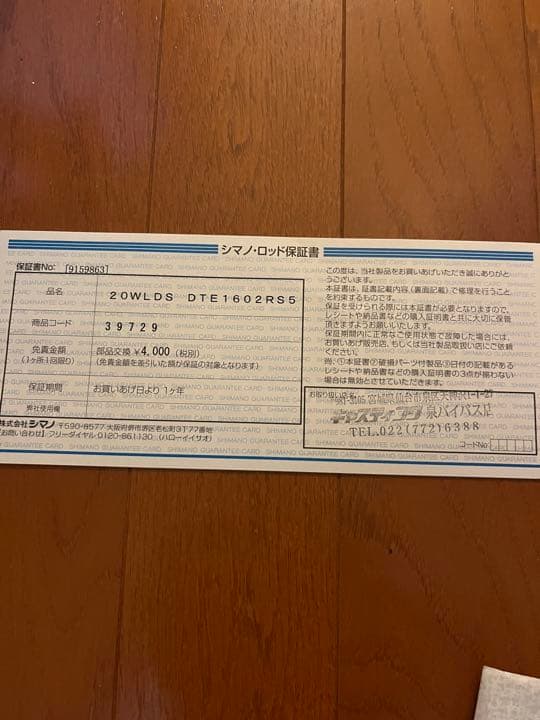 シマノ・ロッド保証書
保証書No: [9159863]
品名 20WLDS DTE1602RS5
商品コード 39729
免責金額 (1ヶ所1回限り) 部品交換 ¥4,000 (税別)
(免責金額を差引いた額が保証の対象となります)
保証期間 お買いあげ日より1ヶ年
弊社使用欄
株式会社シマノ 〒590-8577 大阪府堺市堺区老松町3丁77番地
お問い合わせ: フリーダイヤル 0120-861130 (ハローイイサオ)
この度は、当社製品をお買いあげいただき誠にありがと
うございます。
本書は、証書記載内容(裏面記載)で修理を行うこと
を約束するものです。
保証を受けられる際には本証書が必要となりますので、
レシートや納品書などの購入証明書と共に大切に保管
頂きますようお願いいたします。
保証期間内に正常なご使用状態で故障した場合には、
お買いあげ販売店、もしくは当社製品取扱い店にご依頼
ください。
尚、①本証書②破損パーツ付製品③日付の記載がある
レシートや納品書などの購入証明書の3点が揃わない
場合は無効とさせていただきます。
お取り扱い店名
宮城県仙台市泉区天神沢1-1-27
キャスティング 泉バイパス店
TEL.022(772)6388
コードNo.
SHIMANO GUARANTEE CARD